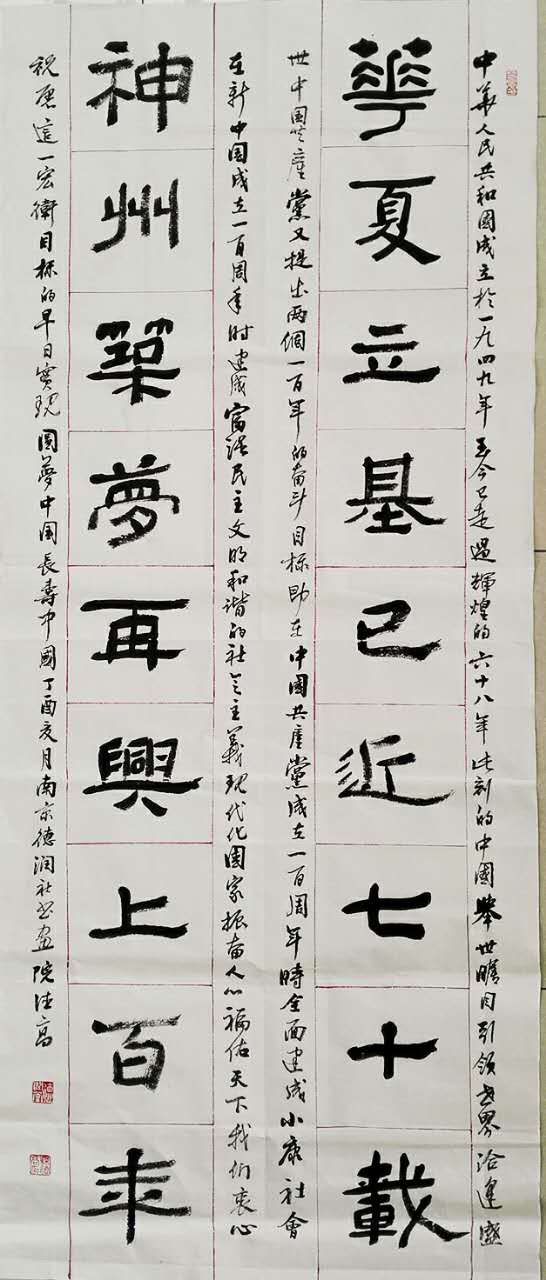 中華人民共和國成立於一九四九年至今已走過輝煌的六十八年此刻的中國舉世瞩目引領世界洽逢盛
華夏立基已近七十載
世中国共產黨又提出两個一百年的奋斗目标即在中國共產黨成立一百周年時全面建成小康社會
在新中国成立一百周年时建成富强民主文明和谐的社会主義现代化国家振奋人心福佑天下我们衷心
神州築夢再興上百年
祝愿這一宏衛目标的早日實現圆夢中国長壽中國丁酉亥月南京德润社书画院法高